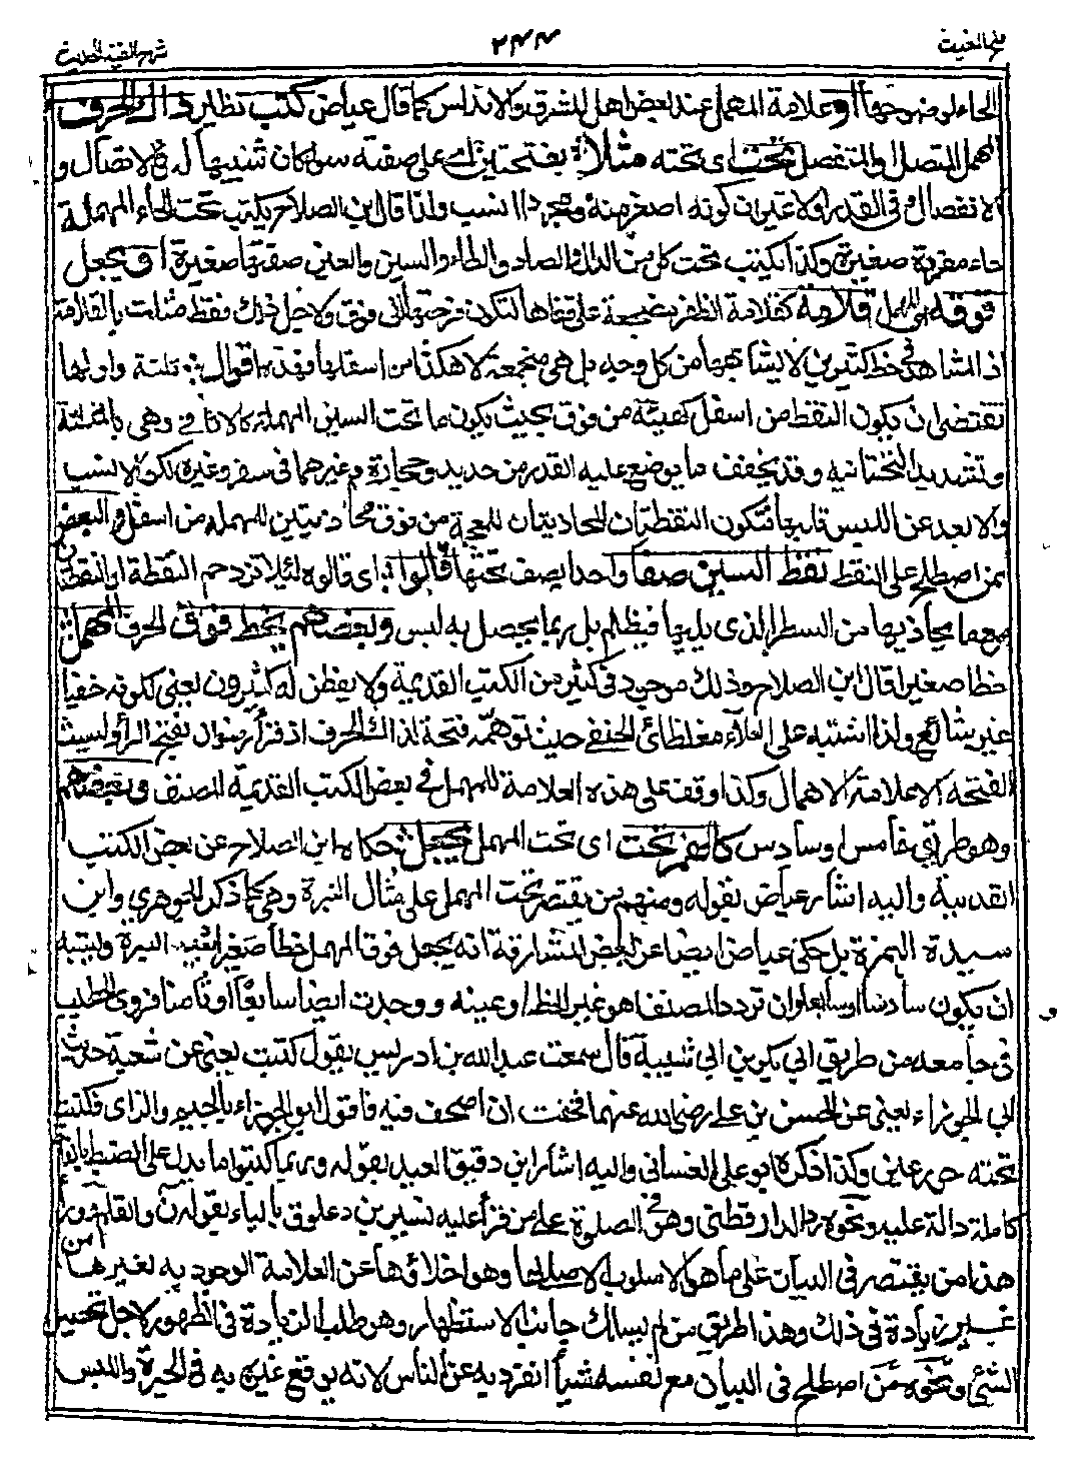 فتح المغيث
٢٤٤
شرح الفية الحديث
الحاء لوضوحها او علامة المهمل عند بعض اهل المشرق والاندلس كما قال عياض كتب نظير ذاك الحرف
المهمل المتصل او المنفصل تحت اى تحته مثلا بفتحتين اى على صفته سواء كان شبيها له في الاتصال و
الانفصال وفى القدر اولا غير ان كونه اصغر منه ومجردا انسب ولذا قال ابن الصلاح يكتب تحت الحاء المهملة
حاء مفردة صغيرة وكذا يكتب تحت كل من الدال والصاد والطاء والسين والعين صفتها صغيرة او يجعل
فوقه اى المهمل قلامة كقلامة الظفر مضجعة على قفاها لتكون فرجتها الى فوق ولاجل ذلك فقط مثلت بالقلامة
اذ المشاهد في خط كثيرين لا يشابهها من كل وجه بل هى منجمعة لا هكذا من اسفلها فهذه اقوال ثلثة واولها
تقتضى ان يكون النقط من اسفل كهيئته من فوق بحيث يكون ما تحت السين المهملة كالاثافي وهى بالمثلثة
وتشديد التحتانية وقد يخفف ما يوضع عليه القدر من حديد وحجارة وغيرهما فى سفر وغيره لكن الانسب
والابعد عن اللبس قلبها فتكون النقطتان المحاذيتان للمعجمة من فوق محاذيتين للمهملة من اسفل والبعض
ممن اصطلح على النقط نقط السين صفا واحدا يصف تحتها قالوا اى قالوه لئلا تزدحم النقطة او النقطتان
معهما يحاذيها من السطر الذى يليها فيظلم بل ربما يحصل به لبس وبعضهم يخط فوق الحرف المهمل
خطا صغيرا قال ابن الصلاح وذلك موجود فى كثير من الكتب القديمة ولا يفطن له كثيرون يعنى لكونه خفيا
غير شائع ولذا اشتبه على العلاء مغلطائى الحنفى حين توهمه فتحة لذاك الحرف اذ قرأ رضوان بفتح الراء وليست
الفتحة الا علامة الاهمال وكذا وقفت على هذه العلامة للمهمل في بعض الكتب القديمة المصنف وبعضهم
وهو طريق خامس او سادس كالهمز تحت اى تحت المهمل يجعل حكاه ابن الصلاح عن بعض الكتب
القديمة واليه اشار عياض بقوله ومنهم من يقتصر تحت المهمل على مثال النبرة وهى كما ذكر الجوهرى وابن
سيدة الهمزة بل حكى عياض ايضا عن بعض المشارقة انه يجعل فوق المهمل خطا صغيرا يشبه النبرة وليتنبه
ان يكون سادسا او سابعا وان تردد المصنف اهو غير الخط او عينه ووجدت ايضا سابعا او ثامنا فروى الخطيب
فى جامعه من طريق ابي بكر بن ابي شيبة قال سمعت عبد الله بن ادريس يقول كتبت يعنى عن شعبة حديث
ابي الحوراء يعنى عن الحسن بن على رضى الله عنهما فخفت ان اصحف فيه فاقول ابو الجوزاء بالجيم والزاى فكتبت
تحته حور عين وكذا ذكره ابو على الغسانى واليه اشار ابن دقيق العيد بقوله وربما كتبوا ما يدل على الضبط بالفاظ
كاملة دالة عليه ونحوه رد الدارقطنى وهو فى الصلوة على من قرأ عليه نسير بن ذعلوق بالياء بقوله ن والقلم ومن
هذا من يقتصر فى البيان على ما هو الاسلوب الاصلى لها وهو اخلاؤها عن العلامة الوجود به لغيرها من
غير زيادة فى ذلك وهذا طريق من لم يسلك جانب الاستظهار وهو طلب الزيادة فى الظهور لاجل تحسين
الشئ ونحوه من اصطلح فى البيان مع نفسه شيأ انفرد به عن الناس لانه يوقع غيره به فى الحيرة واللبس